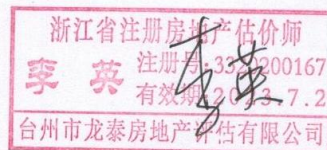 浙江省注册房地产估价师
李英 注册号:3320200167
有效期 2023.7.2
台州市龙泰房地产评估有限公司
李英